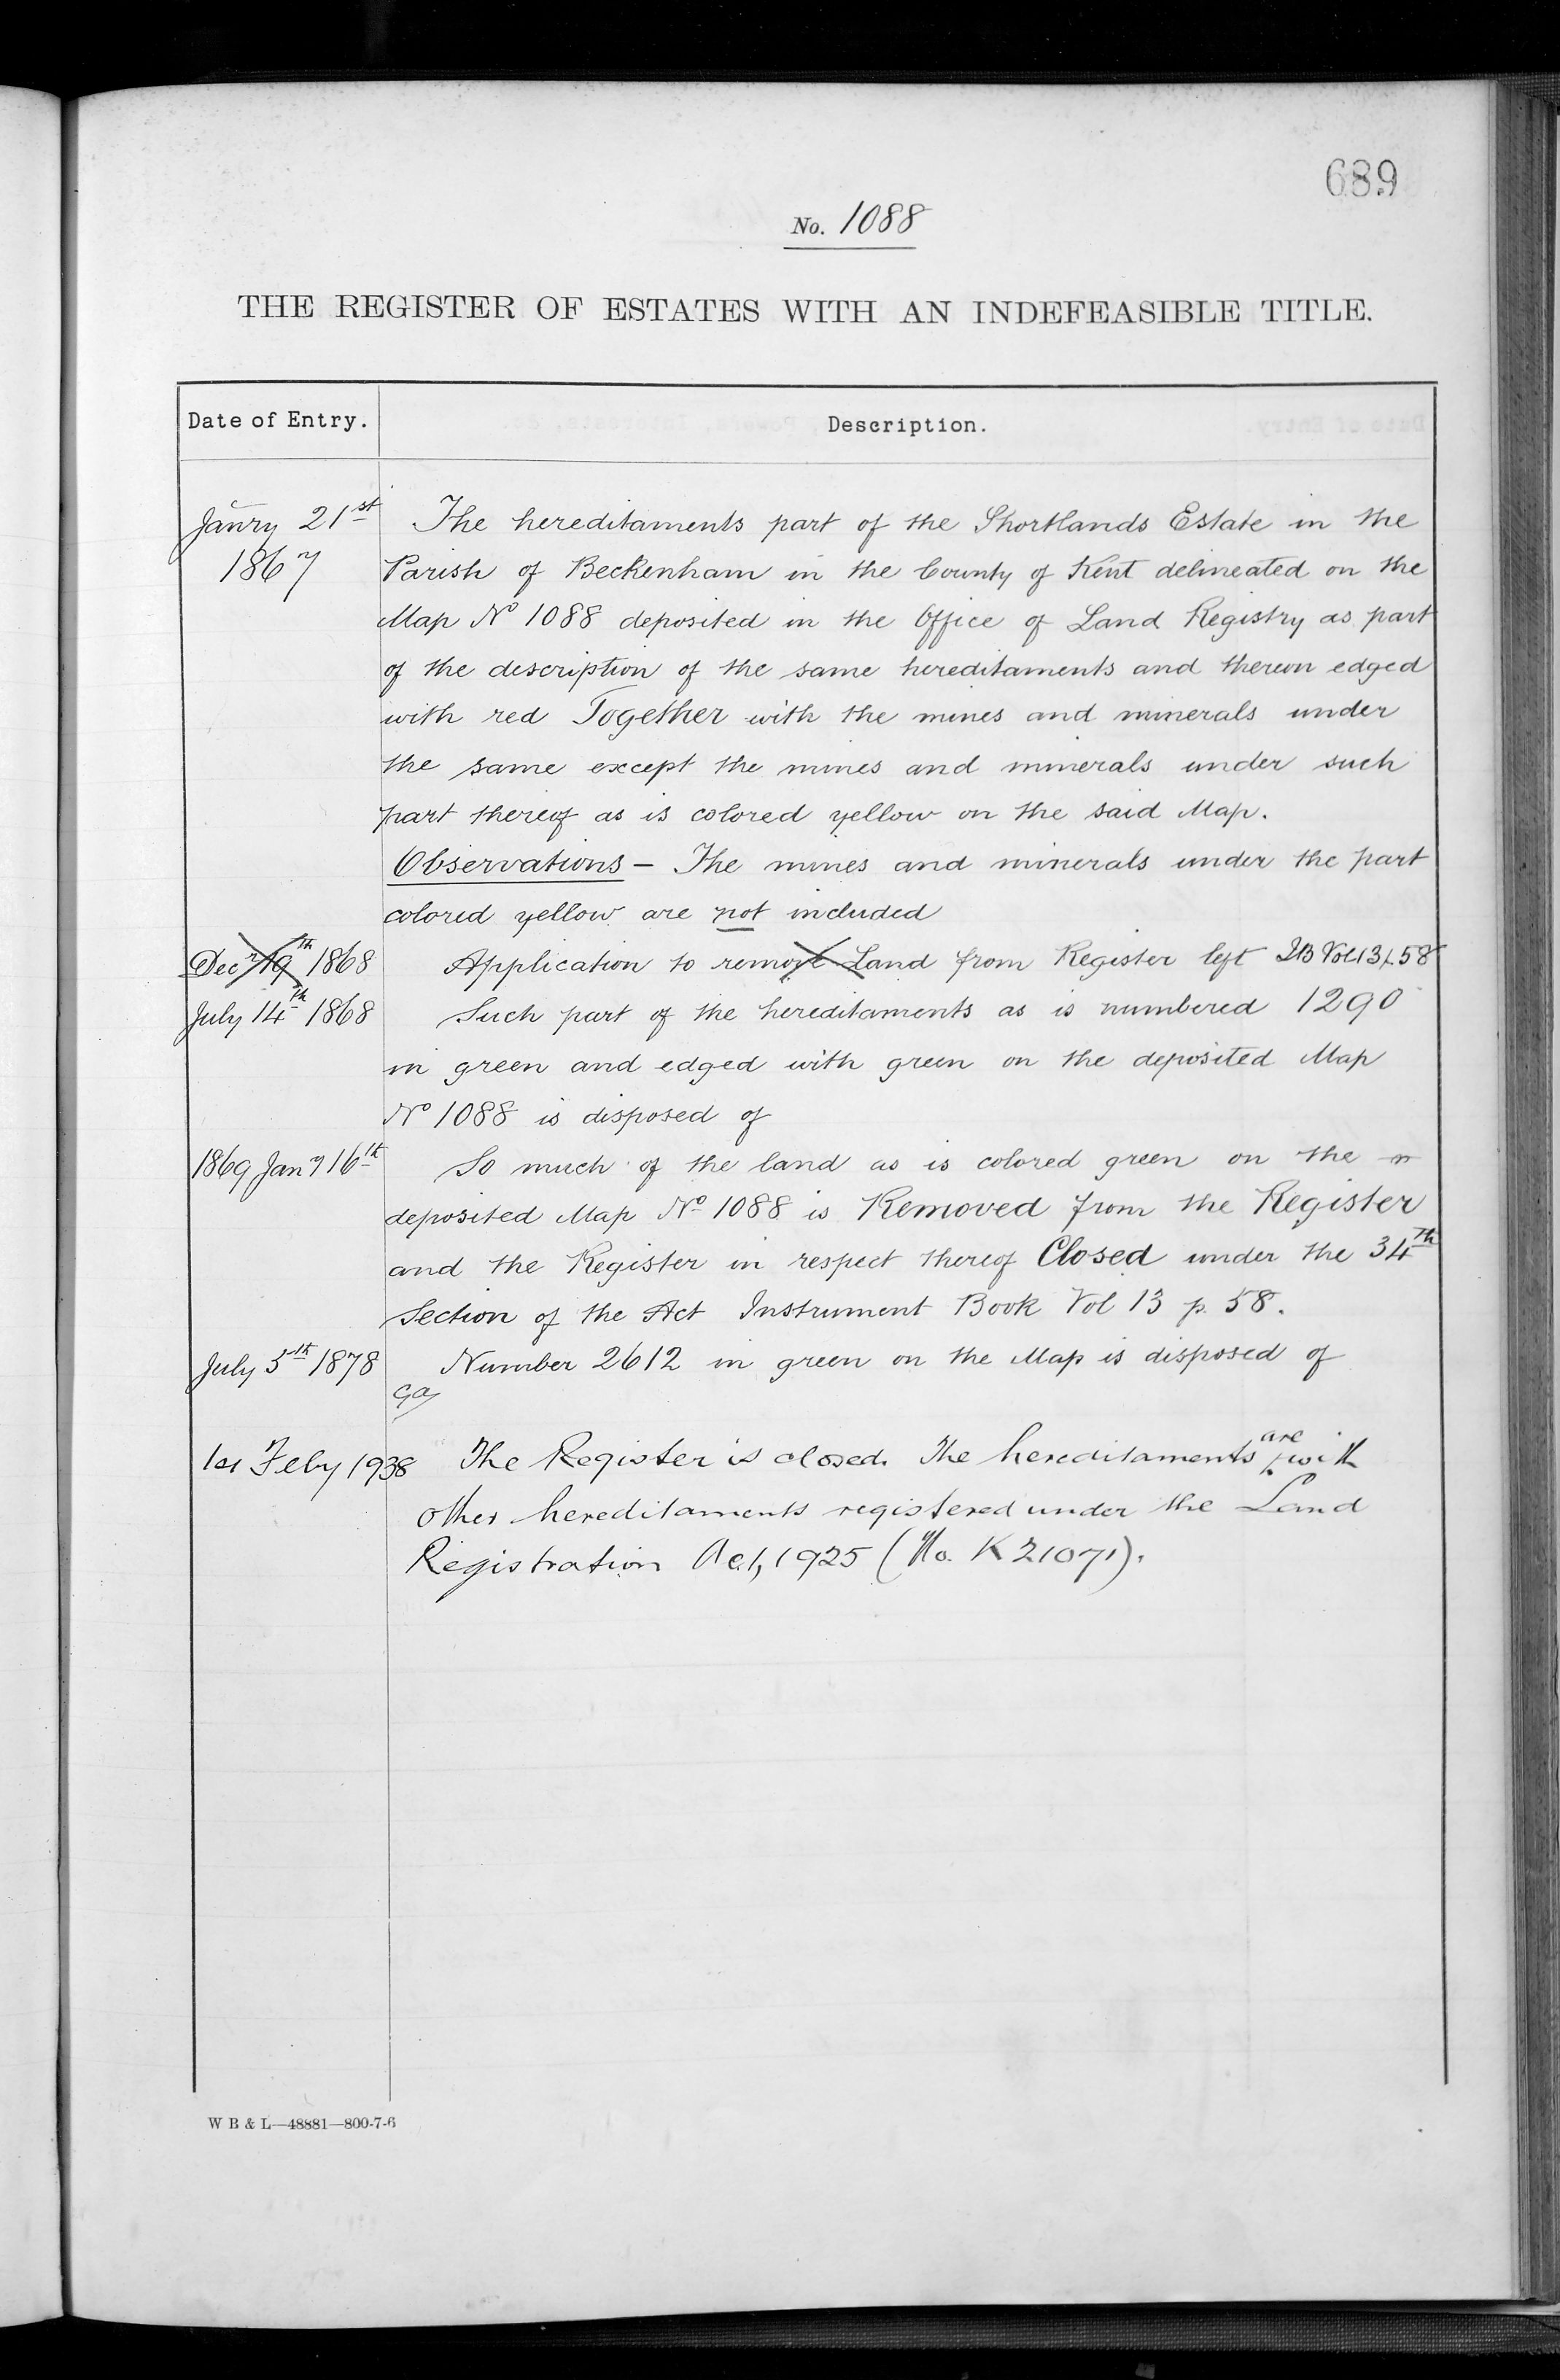 689
No. 1088
THE REGISTER OF ESTATES WITH AN INDEFEASIBLE TITLE.
Date of Entry. Description.
Janry 21st The hereditaments part of the Shortlands Estate in the
1867 Parish of Beckenham in the County of Kent delineated on the
Map No 1088 deposited in the Office of Land Registry as part
of the description of the same hereditaments and thereon edged
with red Together with the mines and minerals under
the same except the mines and minerals under such
part thereof as is colored yellow on the said Map.
Observations – The mines and minerals under the part
colored yellow are not included
Decr 19th 1868 Application to remove Land from Register left IB Vol 13 p. 58
July 14th 1868 Such part of the hereditaments as is numbered 1290
in green and edged with green on the deposited Map
No 1088 is disposed of
1869 Jany 16th So much of the land as is colored green on the
deposited Map No 1088 is Removed from the Register
and the Register in respect thereof Closed under the 34th
Section of the Act Instrument Book Vol 13 p. 58.
July 5th 1878 Number 2612 in green on the Map is disposed of
1st Feby 1938 The Register is closed. The hereditaments are with
other hereditaments registered under the Land
Registration Act, 1925 (No. K 21071).
W B & L—48881—800-7-6